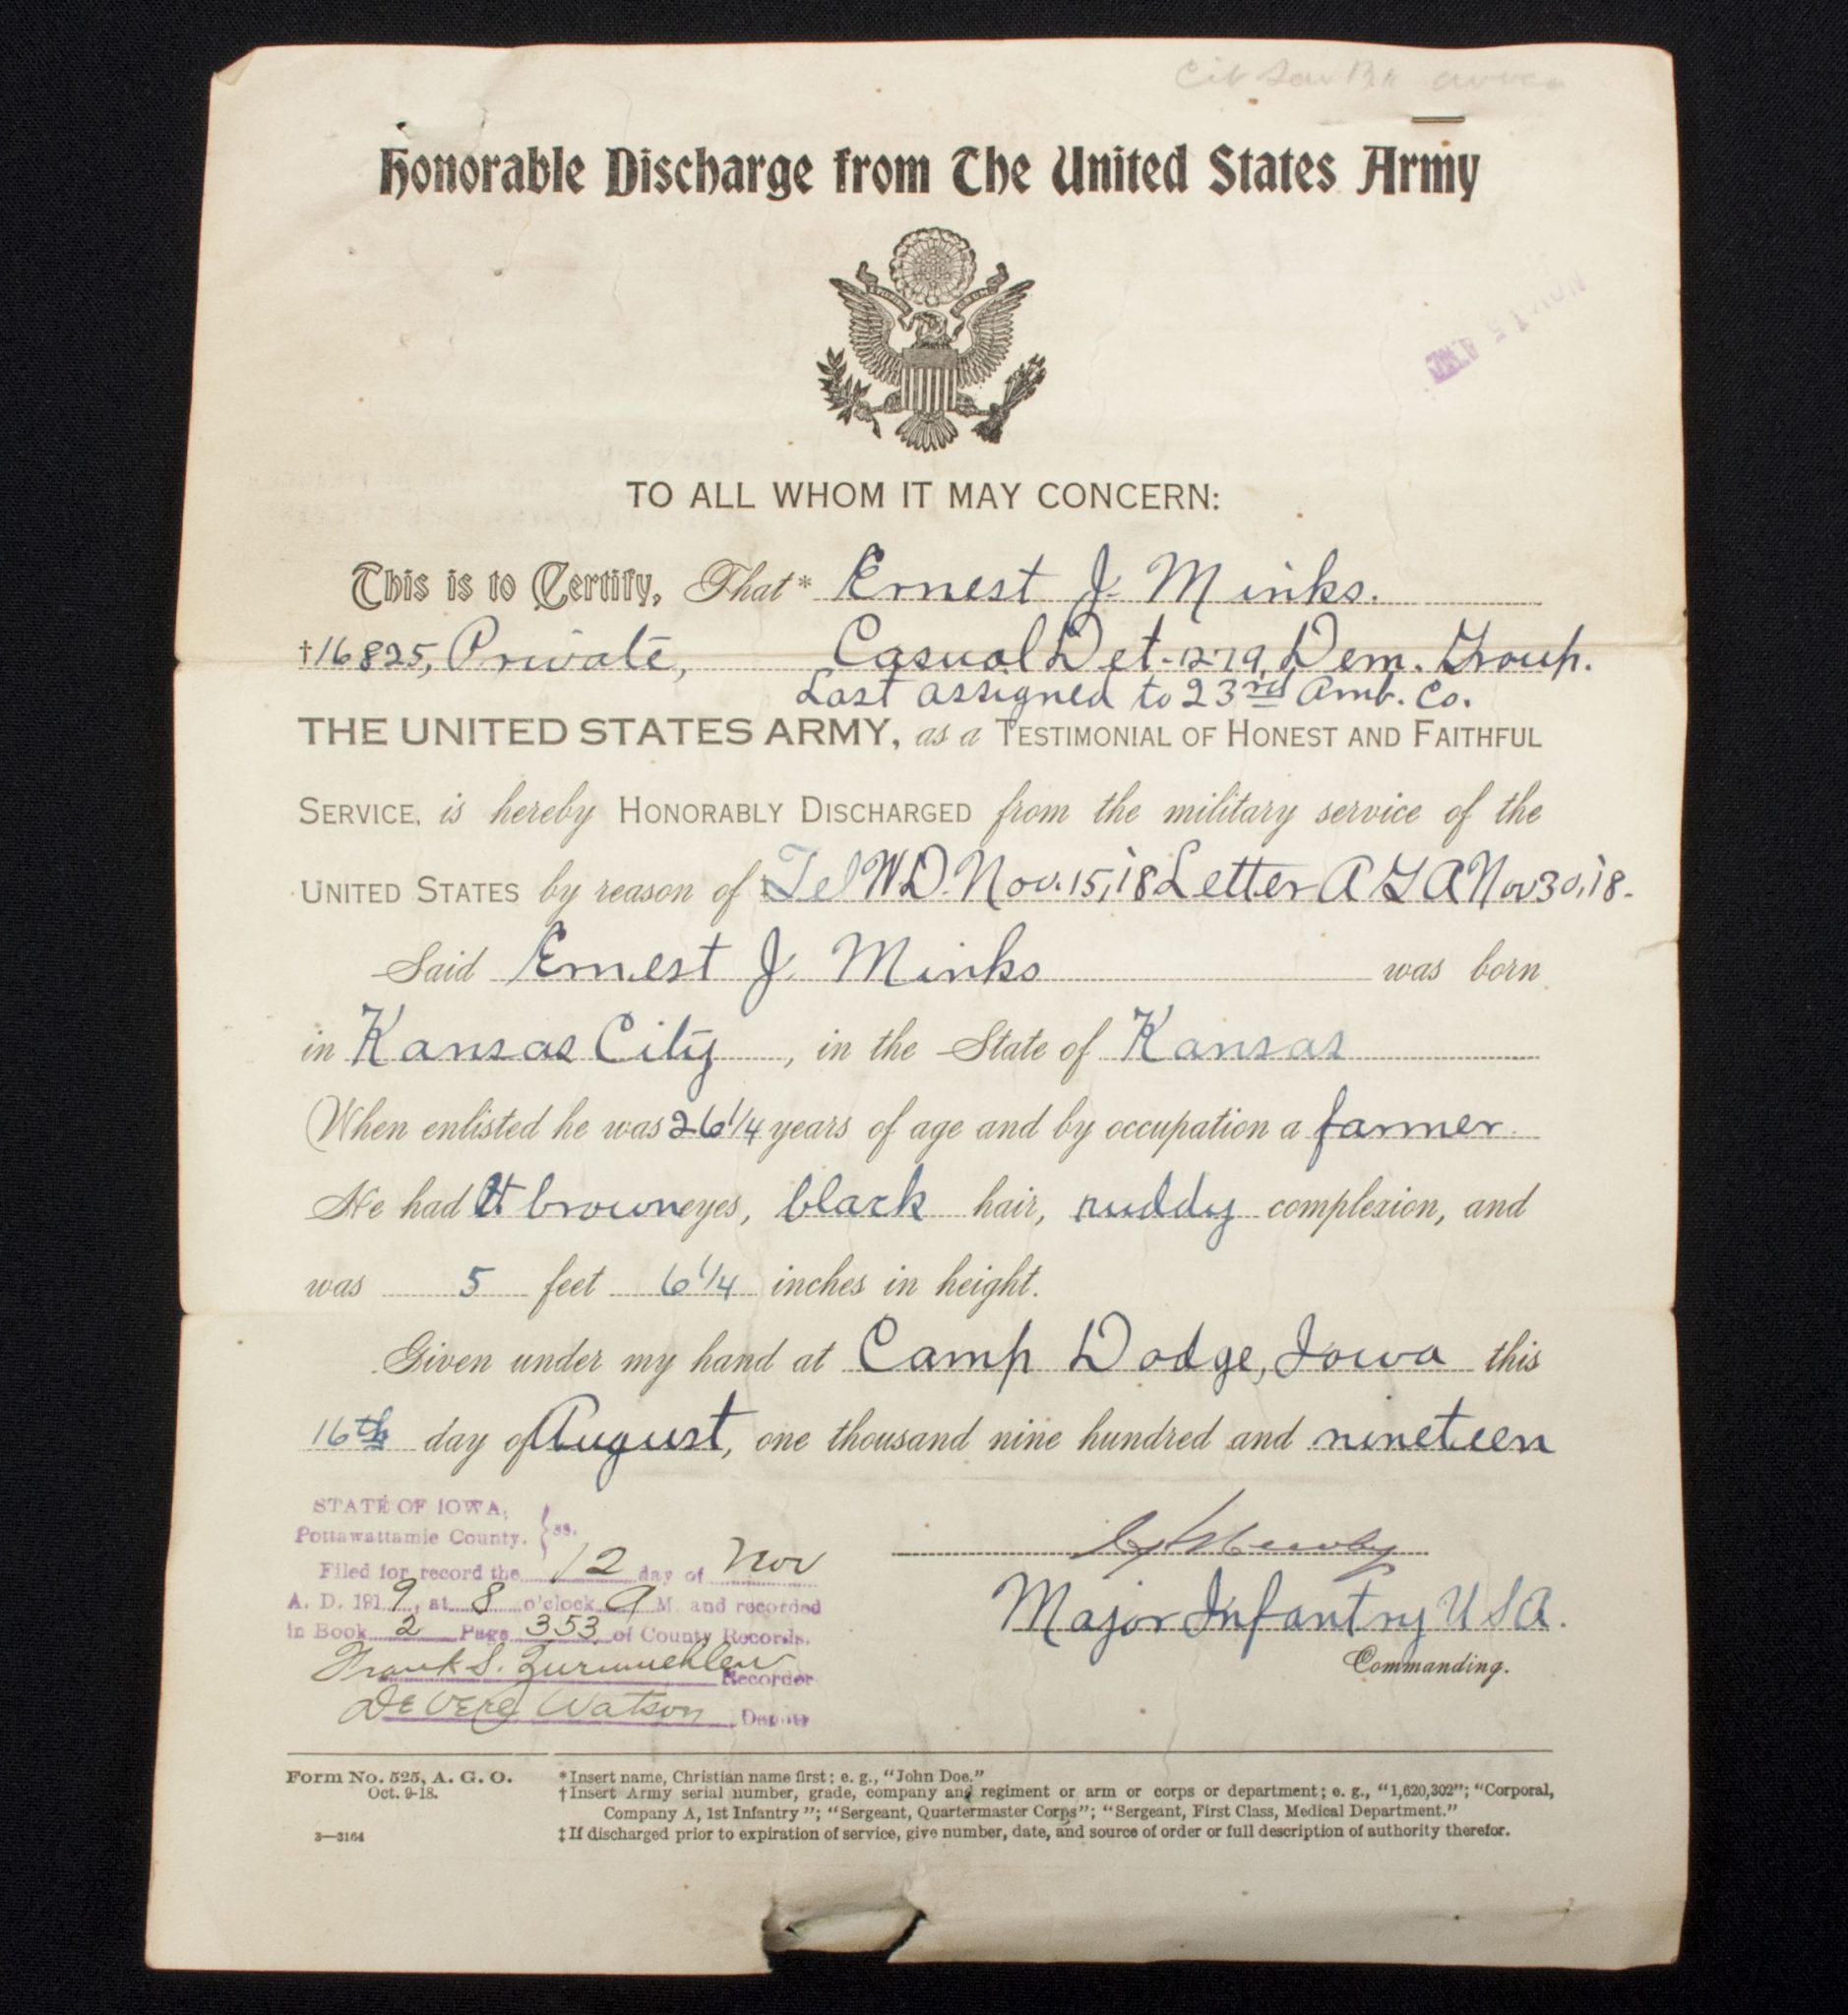 Honorable Discharge from The United States Army
NOV 15
TO ALL WHOM IT MAY CONCERN:
This is to Certify, That* Ernest J. Minks.
†16825, Private, Casual Det-1279, Dem. Group.
Last assigned to 23rd Amb. Co.
THE UNITED STATES ARMY, as a TESTIMONIAL OF HONEST AND FAITHFUL
SERVICE, is hereby HONORABLY DISCHARGED from the military service of the
UNITED STATES by reason of ‡Tel W.D. Nov. 15, '18 Letter A G A Nov 30, '18.
Said Ernest J. Minks was born
in Kansas City, in the State of Kansas
When enlisted he was 26 1/4 years of age and by occupation a farmer
He had lt brown eyes, black hair, ruddy complexion, and
was 5 feet 6 1/4 inches in height.
Given under my hand at Camp Dodge, Iowa this
16th day of August, one thousand nine hundred and nineteen
STATE OF IOWA,
Pottawattamie County. } ss.
Filed for record the 12 day of Nov
A. D. 1919, at 8 o'clock A M. and recorded
in Book 2 Page 353 of County Records.
Frank S. Zurmuehlen Recorder
DeVere Watson Deputy
Major Infantry U S A.
Commanding.
Form No. 525, A. G. O.
Oct. 9-18.
3—3164
*Insert name, Christian name first; e. g., "John Doe."
†Insert Army serial number, grade, company and regiment or arm or corps or department; e. g., "1,620,302"; "Corporal,
Company A, 1st Infantry"; "Sergeant, Quartermaster Corps"; "Sergeant, First Class, Medical Department."
‡If discharged prior to expiration of service, give number, date, and source of order or full description of authority therefor.